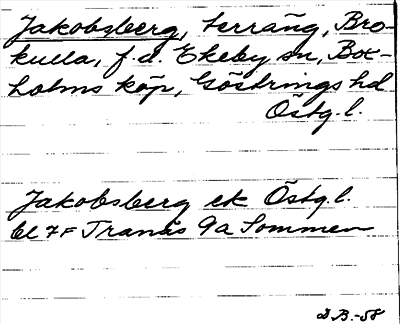 Jakobsberg, terräng, Bro-
kulla, f.d. Ekeby sn, Box-
holms köp, Göstrings hd
Östg.l.
Jakobsberg ek Östg.l.
bl 7F Tranås 9a Sommen
D.B.-58